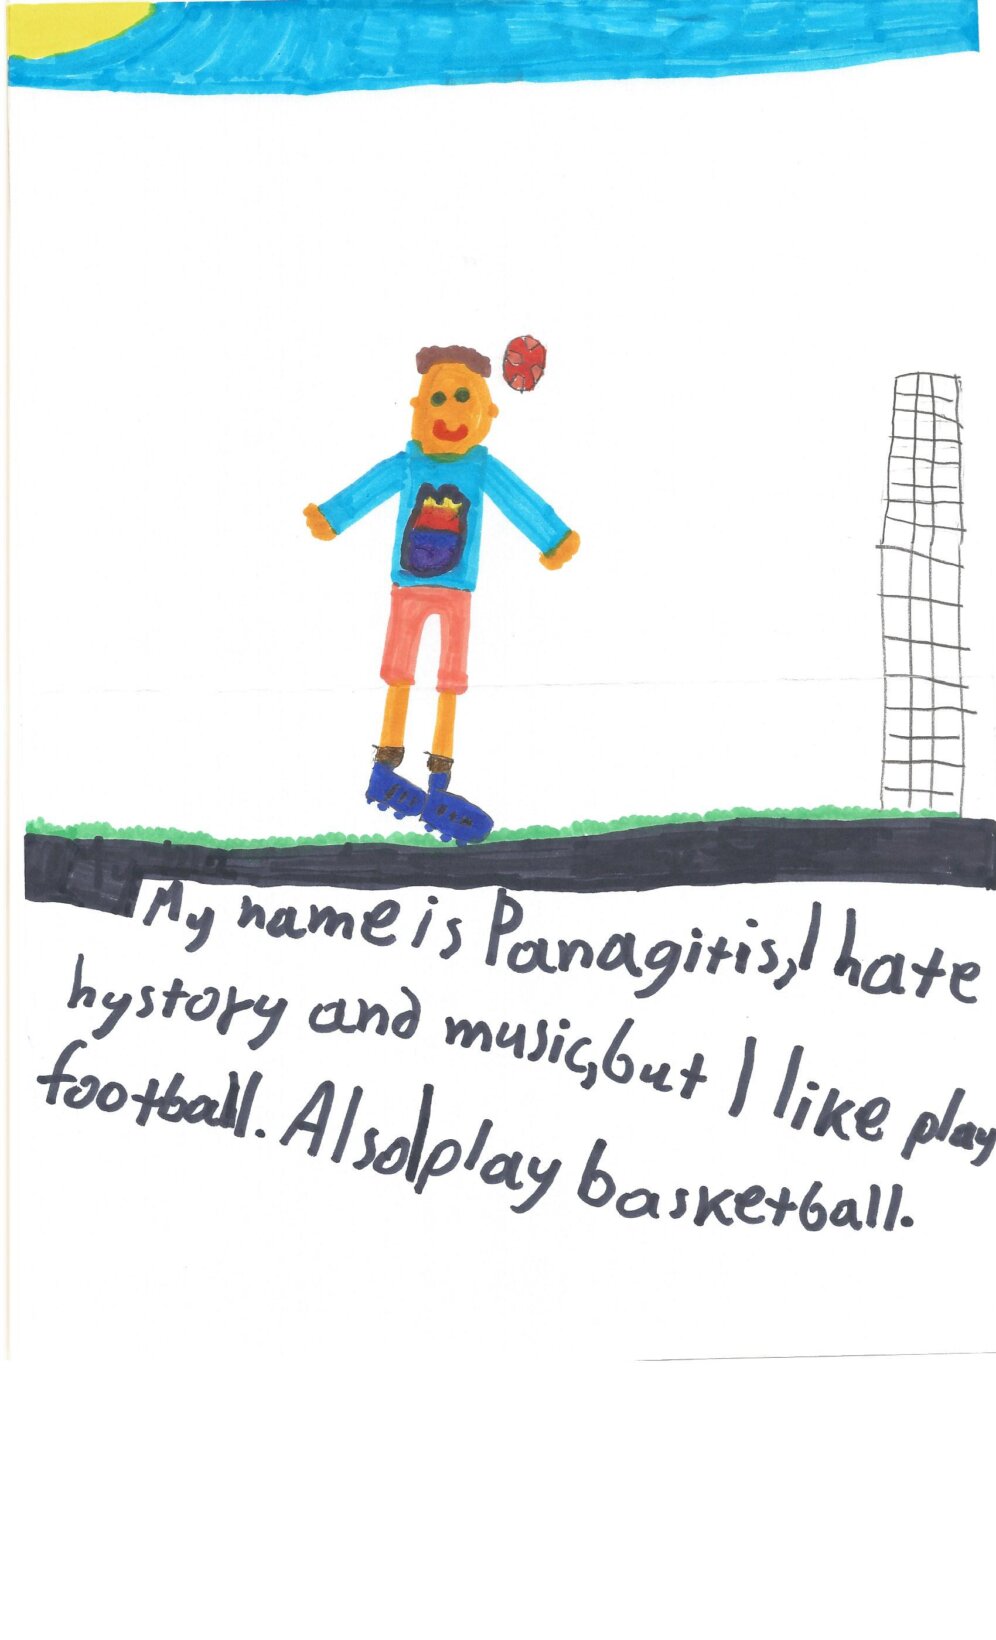 My name is Panagitis, I hate
hystory and music, but I like play
football. Also I play basketball.